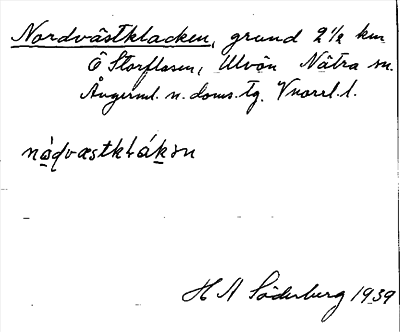 Nordvästklacken, grund 2½ km
Ö Storflasen, Ulvön Nätra sn.
Ångerml. n. doms. tg. Vnorrl. l.
H A Söderberg 1939